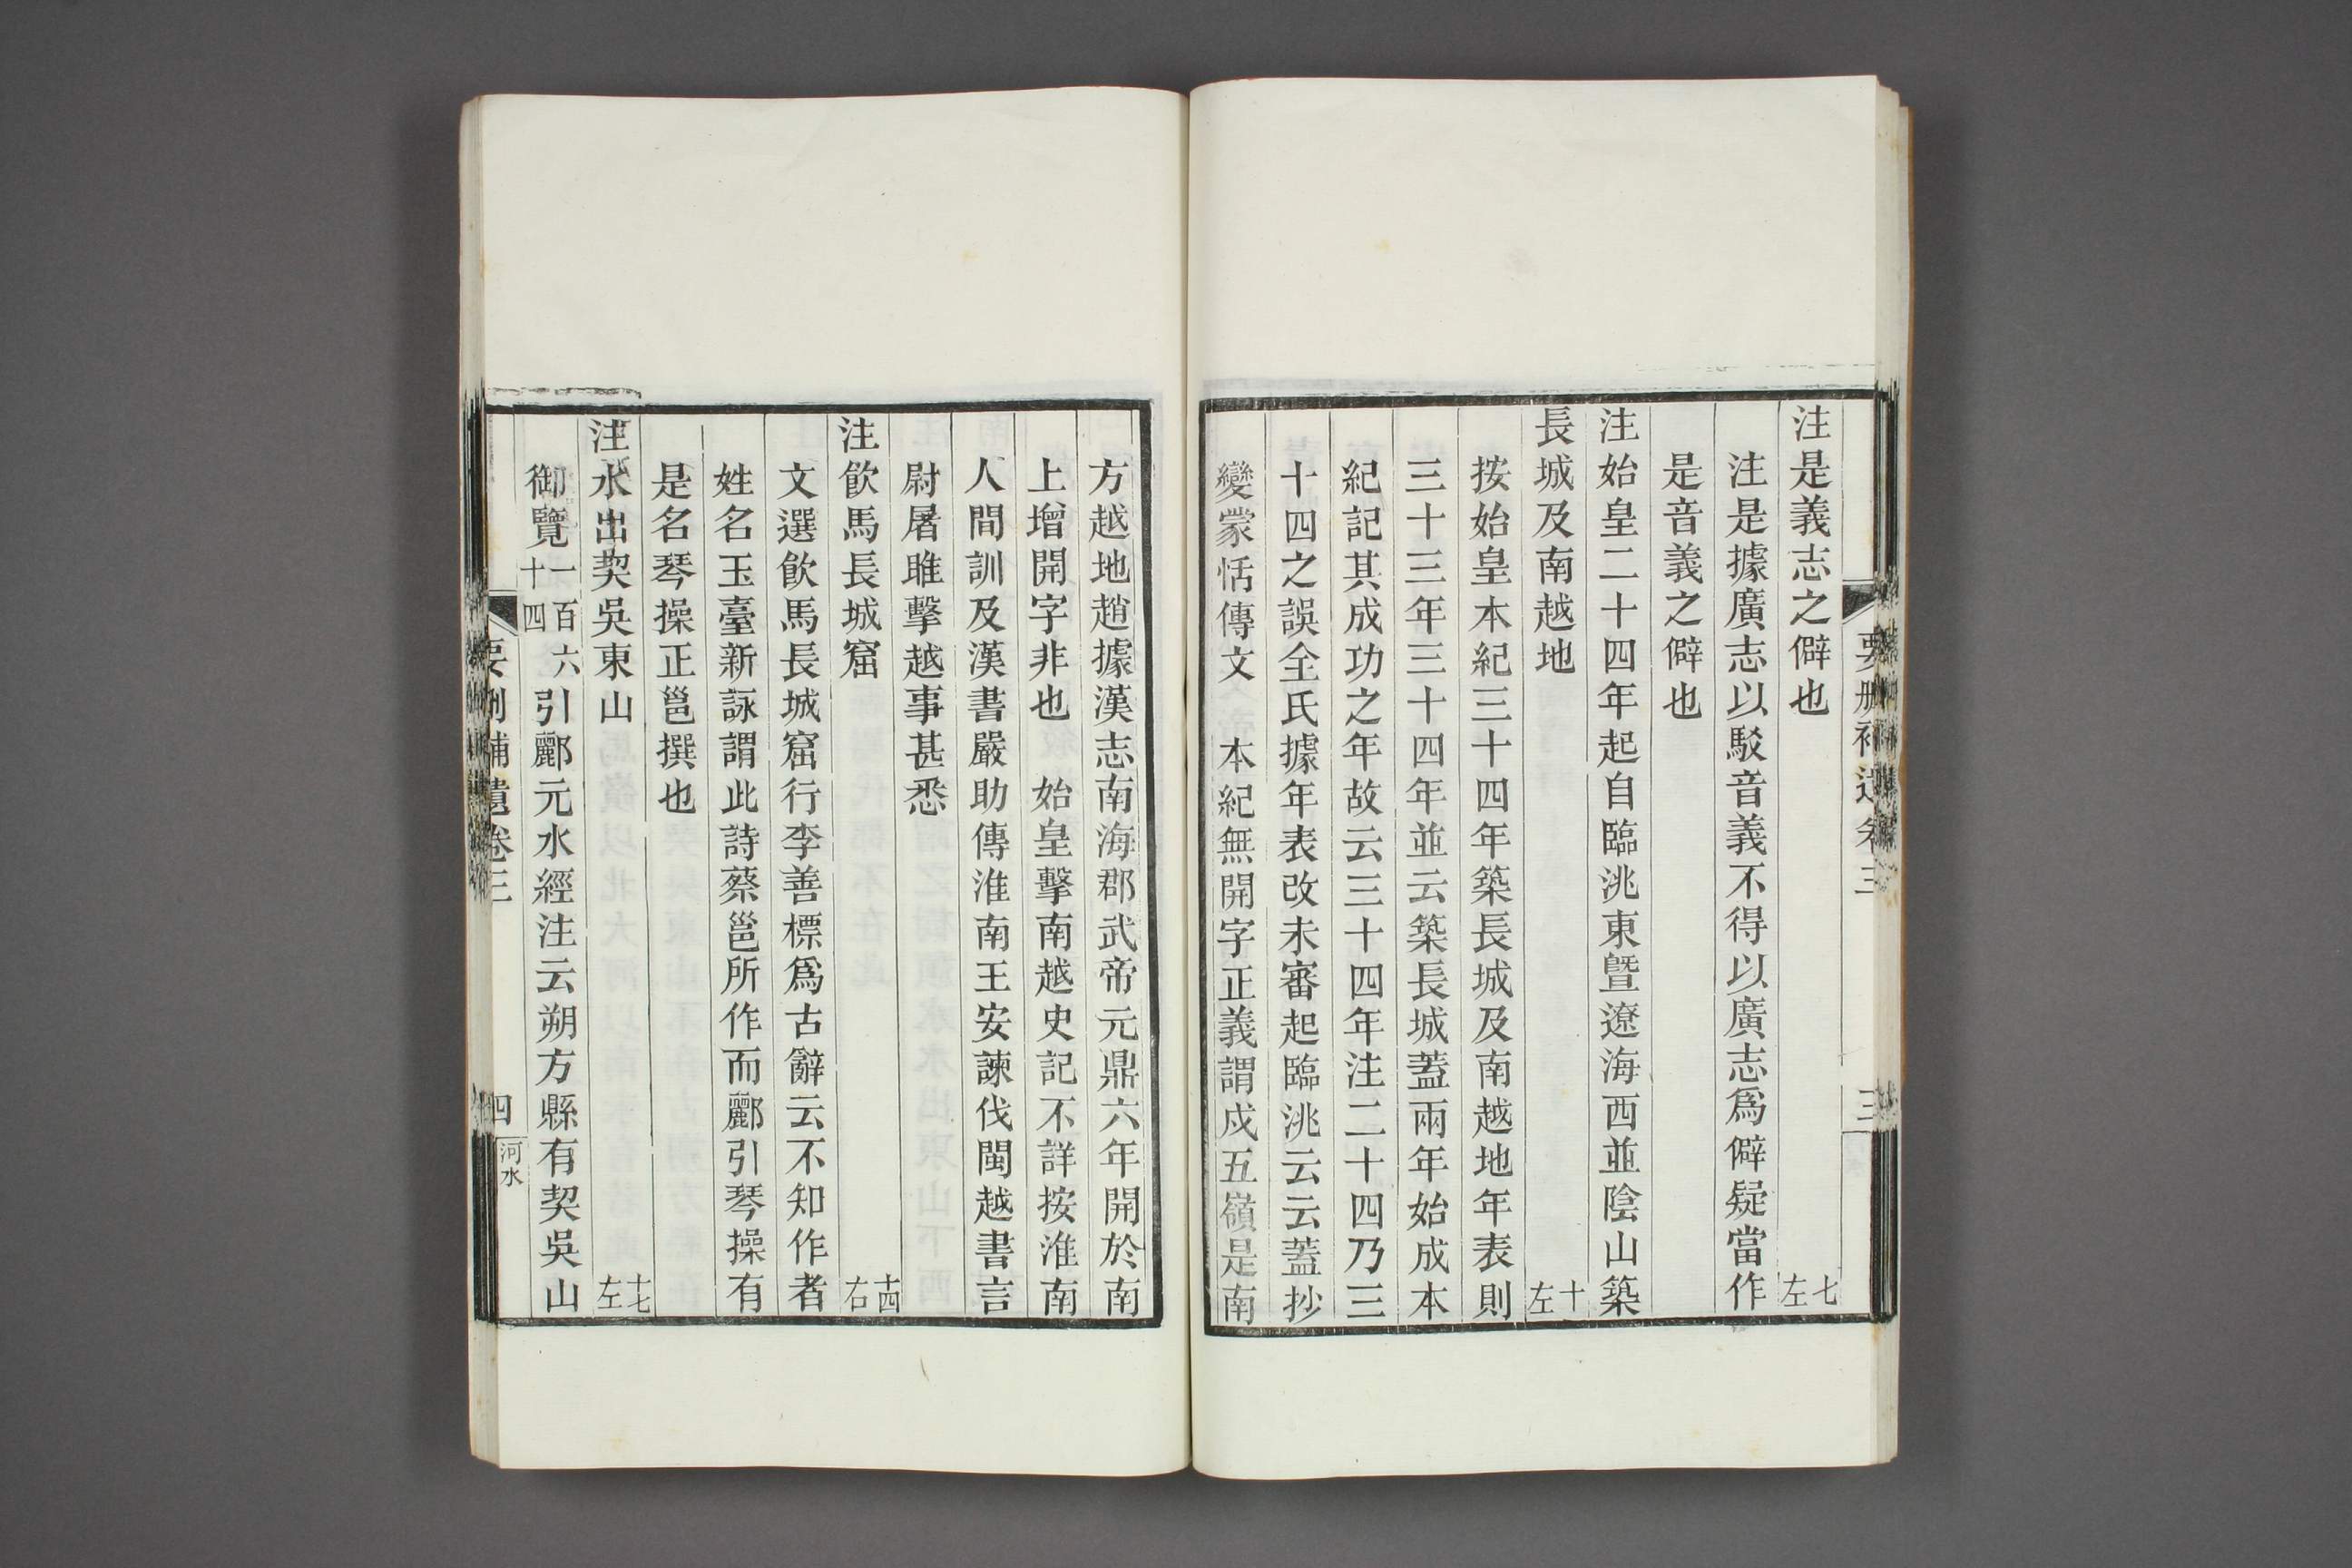 要刪補遺卷三
三
注是義志之僻也 七左
注是據廣志以駁音義不得以廣志爲僻疑當作
是音義之僻也
注始皇二十四年起自臨洮東曁遼海西並陰山築
長城及南越地 十左
按始皇本紀三十四年築長城及南越地年表則
三十三年三十四年並云築長城蓋兩年始成本
紀記其成功之年故云三十四年注二十四乃三
十四之誤全氏據年表改未審起臨洮云云蓋抄
變蒙恬傳文　本紀無開字正義謂戍五嶺是南
方越地趙據漢志南海郡武帝元鼎六年開於南
上增開字非也　始皇擊南越史記不詳按淮南
人間訓及漢書嚴助傳淮南王安諫伐閩越書言
尉屠雎擊越事甚悉
注飮馬長城窟 十四右
文選飮馬長城窟行李善標爲古辭云不知作者
姓名玉臺新詠謂此詩蔡邕所作而酈引琴操有
是名琴操正邕撰也
注水出契吳東山 十七左
御覽一百六十四引酈元水經注云朔方縣有契吳山
要刪補遺卷三
四
河水